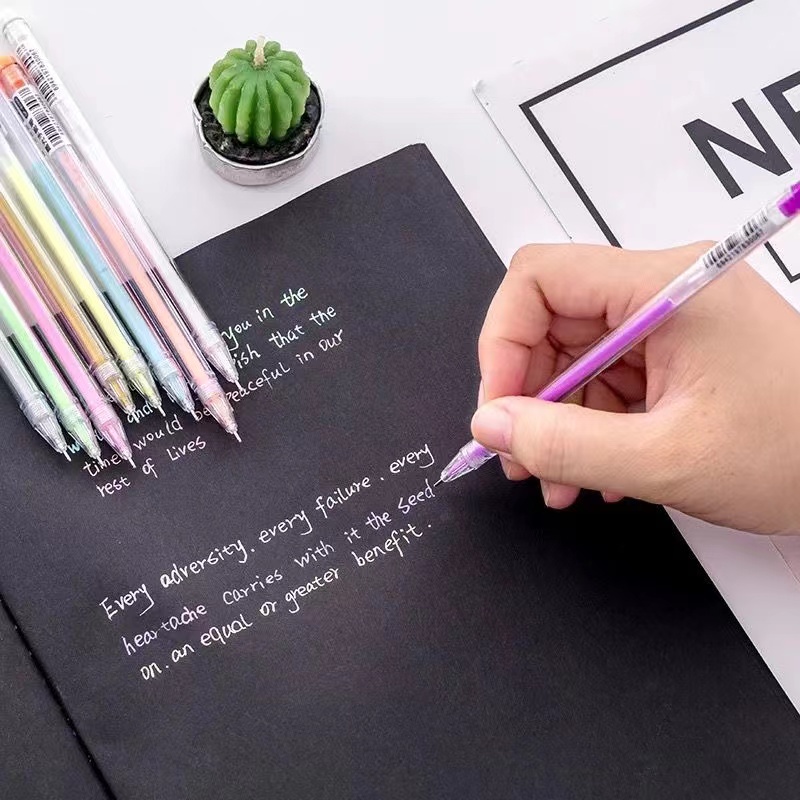 NE
you in the
ish that the
and peaceful in our
time would be
rest of Lives
Every adversity. every failure. every
heartache carries with it the seed
on. an equal or greater benefit.